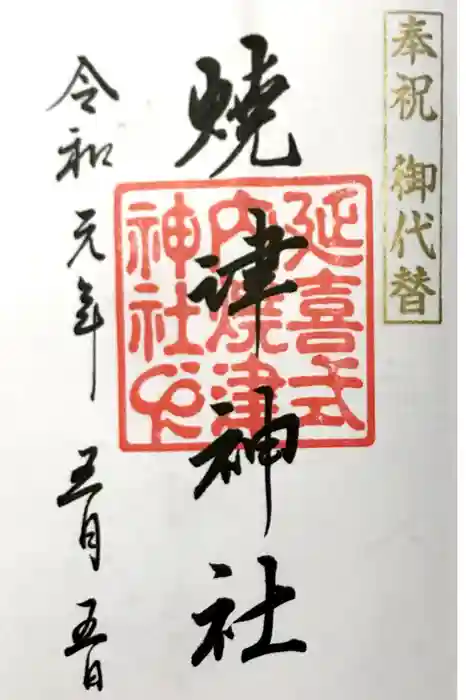 奉祝 御代替
燒津神社
延喜式
内焼津
神社印
令和元年 五月五日